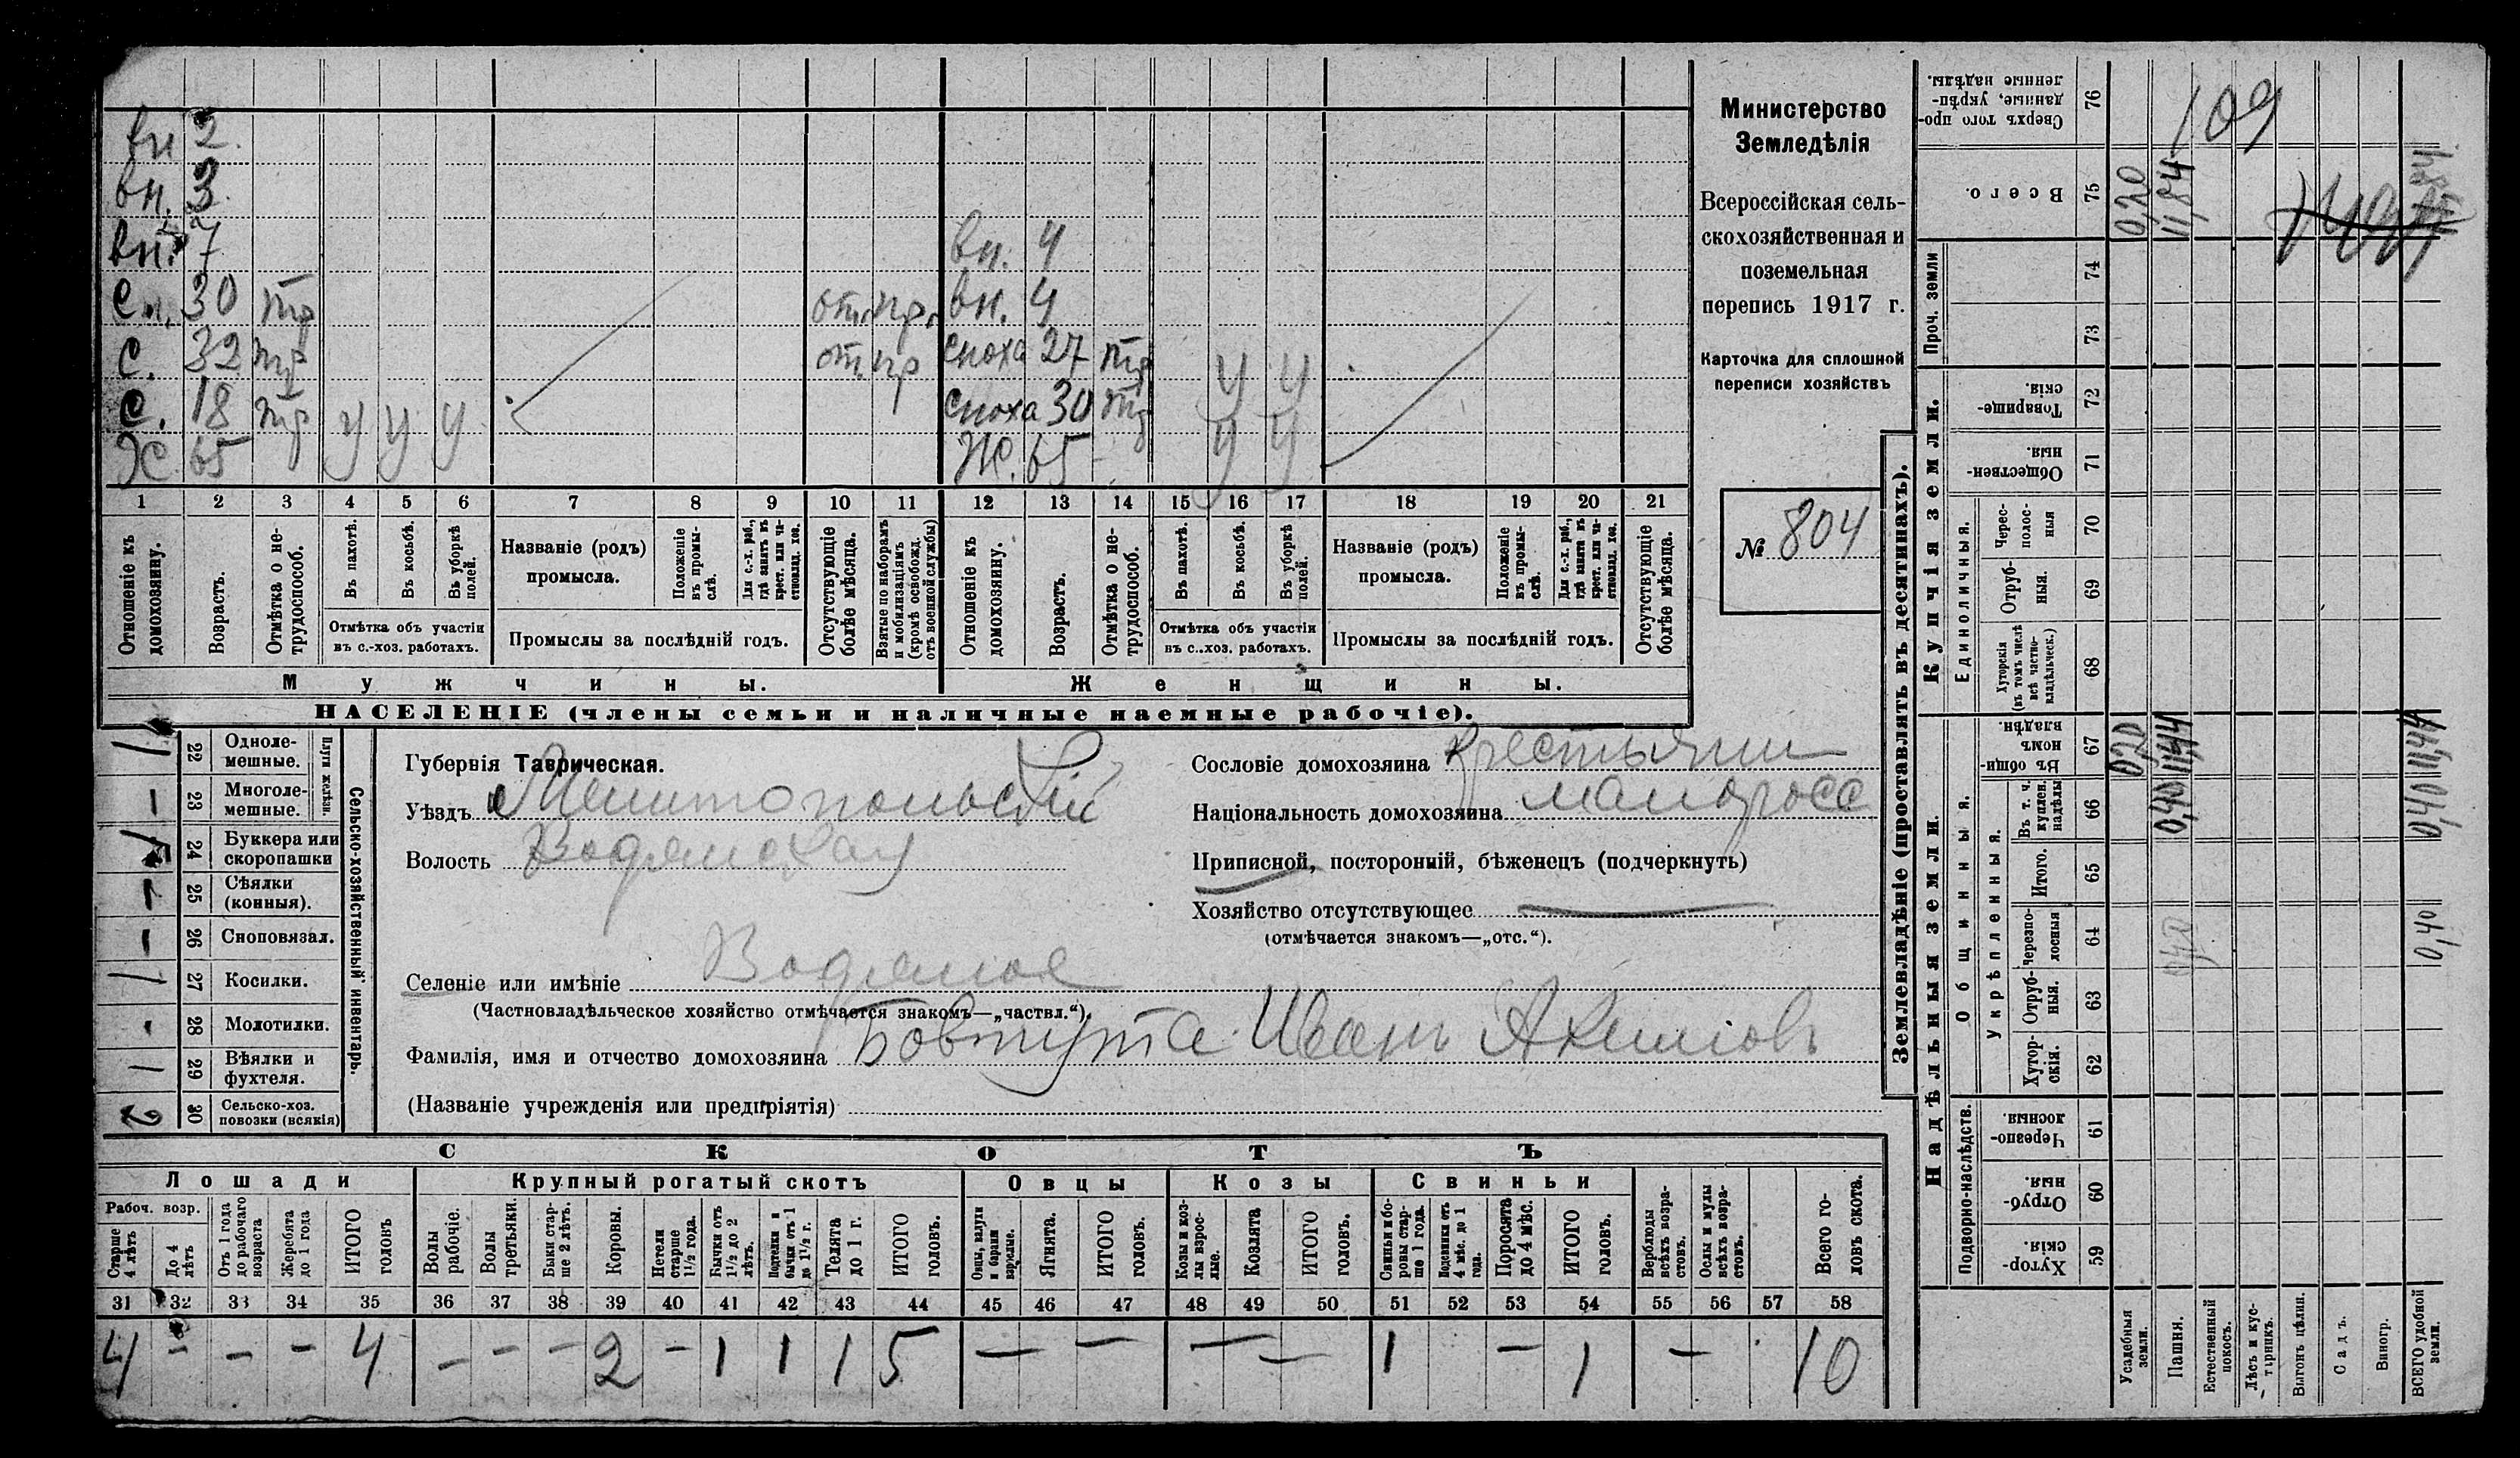 вн 2.
вн. 3.
вн. 7 вн. 4
сн. 30 тр от. пр. вн. 4
с. 32 тр от. пр сноха 27 тр у у
с. 18 тр у у у сноха 30 тр у у
Ж 65 Ж. 65
1 2 3 4 5 6 7 8 9 10 11 12 13 14 15 16 17 18 19 20 21
Отношеніе къ домохозяину.
Возрастъ.
Отмѣтка о нетрудоспособ.
Въ пахотѣ.
Въ косьбѣ.
Въ уборкѣ полей.
Отмѣтка объ участіи
въ с.-хоз. работахъ.
Названіе (родъ)
промысла.
Положеніе въ промыслѣ.
Для с.-х. раб., гдѣ занятъ въ крест. или частновлад. хоз.
Промыслы за послѣдній годъ.
Отсутствующіе болѣе мѣсяца.
Взятые по наборамъ и мобилизаціямъ (кромѣ освобожд. отъ военной службы)
Отношеніе къ домохозяину.
Возрастъ.
Отмѣтка о нетрудоспособ.
Въ пахотѣ.
Въ косьбѣ.
Въ уборкѣ полей.
Отмѣтка объ участіи
въ с..хоз. работахъ.
Названіе (родъ)
промысла.
Положеніе въ промыслѣ.
Для с.-х. раб., гдѣ занята въ крест. или частновлад. хоз.
Промыслы за послѣдній годъ.
Отсутствующіе болѣе мѣсяца.
Мужчины.
Женщины.
НАСЕЛЕНІЕ (члены семьи и наличные наемные рабочіе).
Министерство
Земледѣлія
Всероссійская сель-
скохозяйственная и
поземельная
перепись 1917 г.
Карточка для сплошной
переписи хозяйствъ
№ 804
1 22 Одноле-
мешные.
Плуги желѣзн.
— 23 Многоле-
мешные.
24 Буккера или
скоропашки
— 25 Сѣялки
(конныя).
— 26 Сноповязал.
1 27 Косилки.
- 28 Молотилки.
1 29 Вѣялки и
фухтеля.
2 30 Сельско-хоз.
повозки (всякія)
Сельско-хозяйственный инвентарь.
Губернія Таврическая.
Уѣздъ Мелитопольскій
Волость Водянская
Селеніе или имѣніе Водяное
(Частновладѣльческое хозяйство отмѣчается знакомъ—„частвл.“).
Фамилія, имя и отчество домохозяина Бовтута Иванъ Акимовъ
(Названіе учрежденія или предпріятія)
Сословіе домохозяина крестьянин
Національность домохозяина малоросс
Приписной, посторонній, бѣженецъ (подчеркнуть)
Хозяйство отсутствующее —
(отмѣчается знакомъ—„отс.“).
СКОТЪ
Лошади Крупный рогатый скотъ Овцы Козы Свиньи
Рабоч. возр.
Старше 4 лѣтъ
До 4 лѣтъ
Отъ 1 года до рабочаго возраста
Жеребята до 1 года
ИТОГО головъ
Волы рабочіе.
Волы третьяки.
Быки старше 2 лѣтъ.
Коровы.
Нетели старше 1½ года.
Бычки отъ 1½ до 2 лѣтъ.
Подтелки и бычки отъ 1 до 1½ г.
Телята до 1 г.
ИТОГО головъ.
Овцы, валухи и бараны взрослые.
Ягнята.
ИТОГО головъ.
Козы и козлы взрослые.
Козлята
ИТОГО головъ.
Свиньи и боровы старше 1 года.
Подсвинки отъ 4 мѣс. до 1 года.
Поросята до 4 мѣс.
ИТОГО головъ.
Верблюды всѣхъ возрастовъ.
Ослы и мулы всѣхъ возрастовъ.
Всего головъ скота.
31 32 33 34 35 36 37 38 39 40 41 42 43 44 45 46 47 48 49 50 51 52 53 54 55 56 57 58
4 - - - 4 - - - 2 - 1 1 1 5 — — — — 1 - 1 - 10
Землевладѣніе (проставлять въ десятинахъ).
Купчія земли.
Надѣльныя земли.
Сверхъ того проданные, укрѣпленные надѣлы. 76 109
Всего. 75 0,20 11,84
Проч. земли 74
73
Товарищескія. 72
Общественныя. 71
Единоличныя.
Чересполосныя 70
Отрубныя. 69
Хуторскія (въ томъ числѣ всѣ частновладѣльческ.) 68
Общинныя.
Въ общинномъ владѣн. 67 0,20 11,44 11,44
Укрѣпленныя.
Въ т. ч. куплен. надѣлы 66 0,40 0,40
Итого. 65
Черезполосныя 64 0,40 0,40
Отрубныя. 63
Хуторскія. 62
Подворно-наслѣдств.
Черезполосныя. 61
Отрубныя. 60
Хуторскія. 59
Усадебныя земли.
Пашня.
Естественный покосъ.
Лѣсъ и кустарникъ.
Выгонъ цѣлин.
Садъ.
Виногр.
ВСЕГО удобной земли.